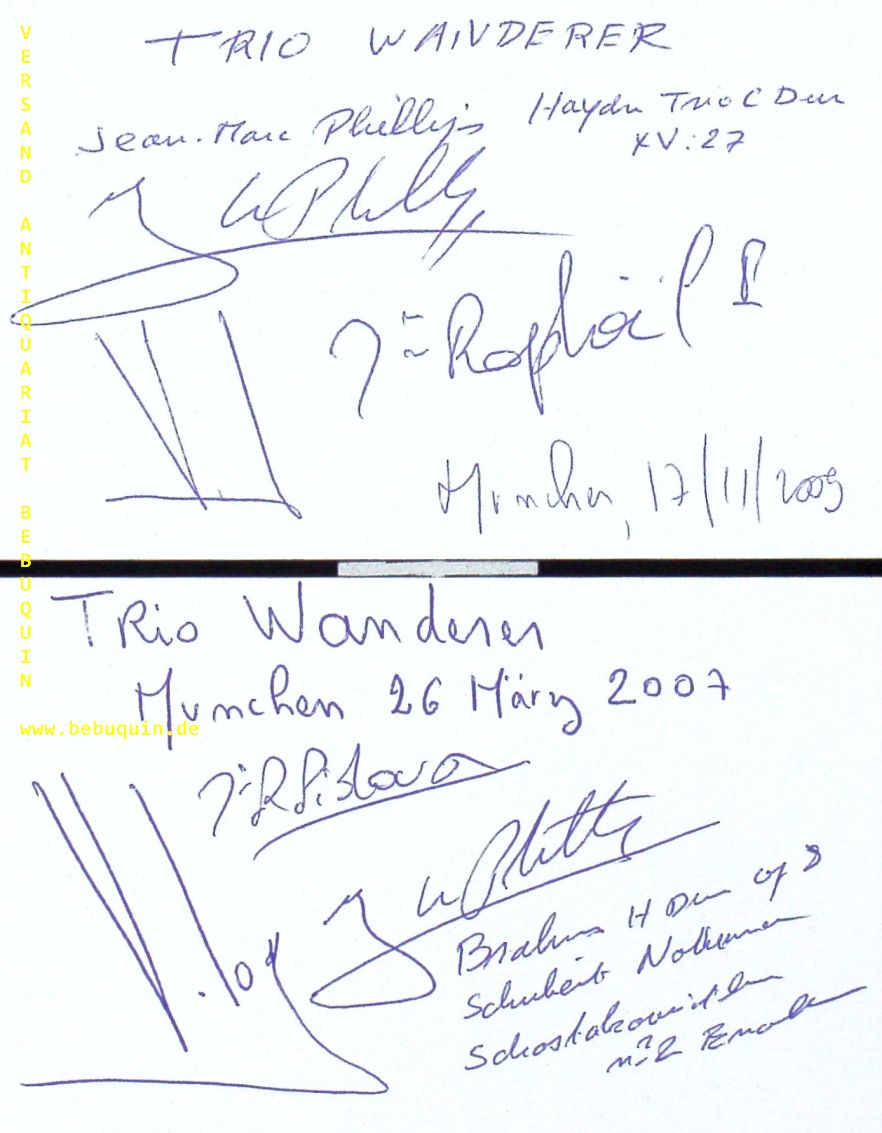 VERSAND ANTIQUARIAT BEBUQUIN
www.bebuquin.de
TRIO WANDERER
Jean-Marc Phillips
Haydn Trio C Dur
XV:27
Raphaël P
München, 17/11/2009
TRio Wanderer
München 26 März 2007
Brahms H Dur op 8
Schubert Notturno
Schostakowitch
n°2 E moll